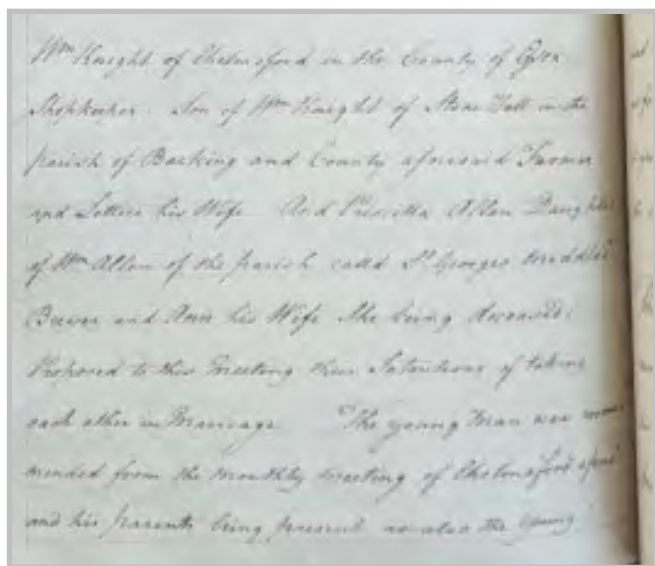 Wm Knight of Chelmsford in the County of Essex
Shopkeeper. Son of Wm Knight of Stone Hall in the
parish of Barking and County aforesaid Farmer
and Lettice his Wife And Priscilla Allen Daughter
of Wm Allen of the parish called St Georges Middlex
Brewer and Ann his Wife She being deceased:
Proposed to this Meeting their Intentions of taking
each other in Marriage The young Man was recom
mended from the monthly meeting of Chelmsford
and his parents being present as also the young